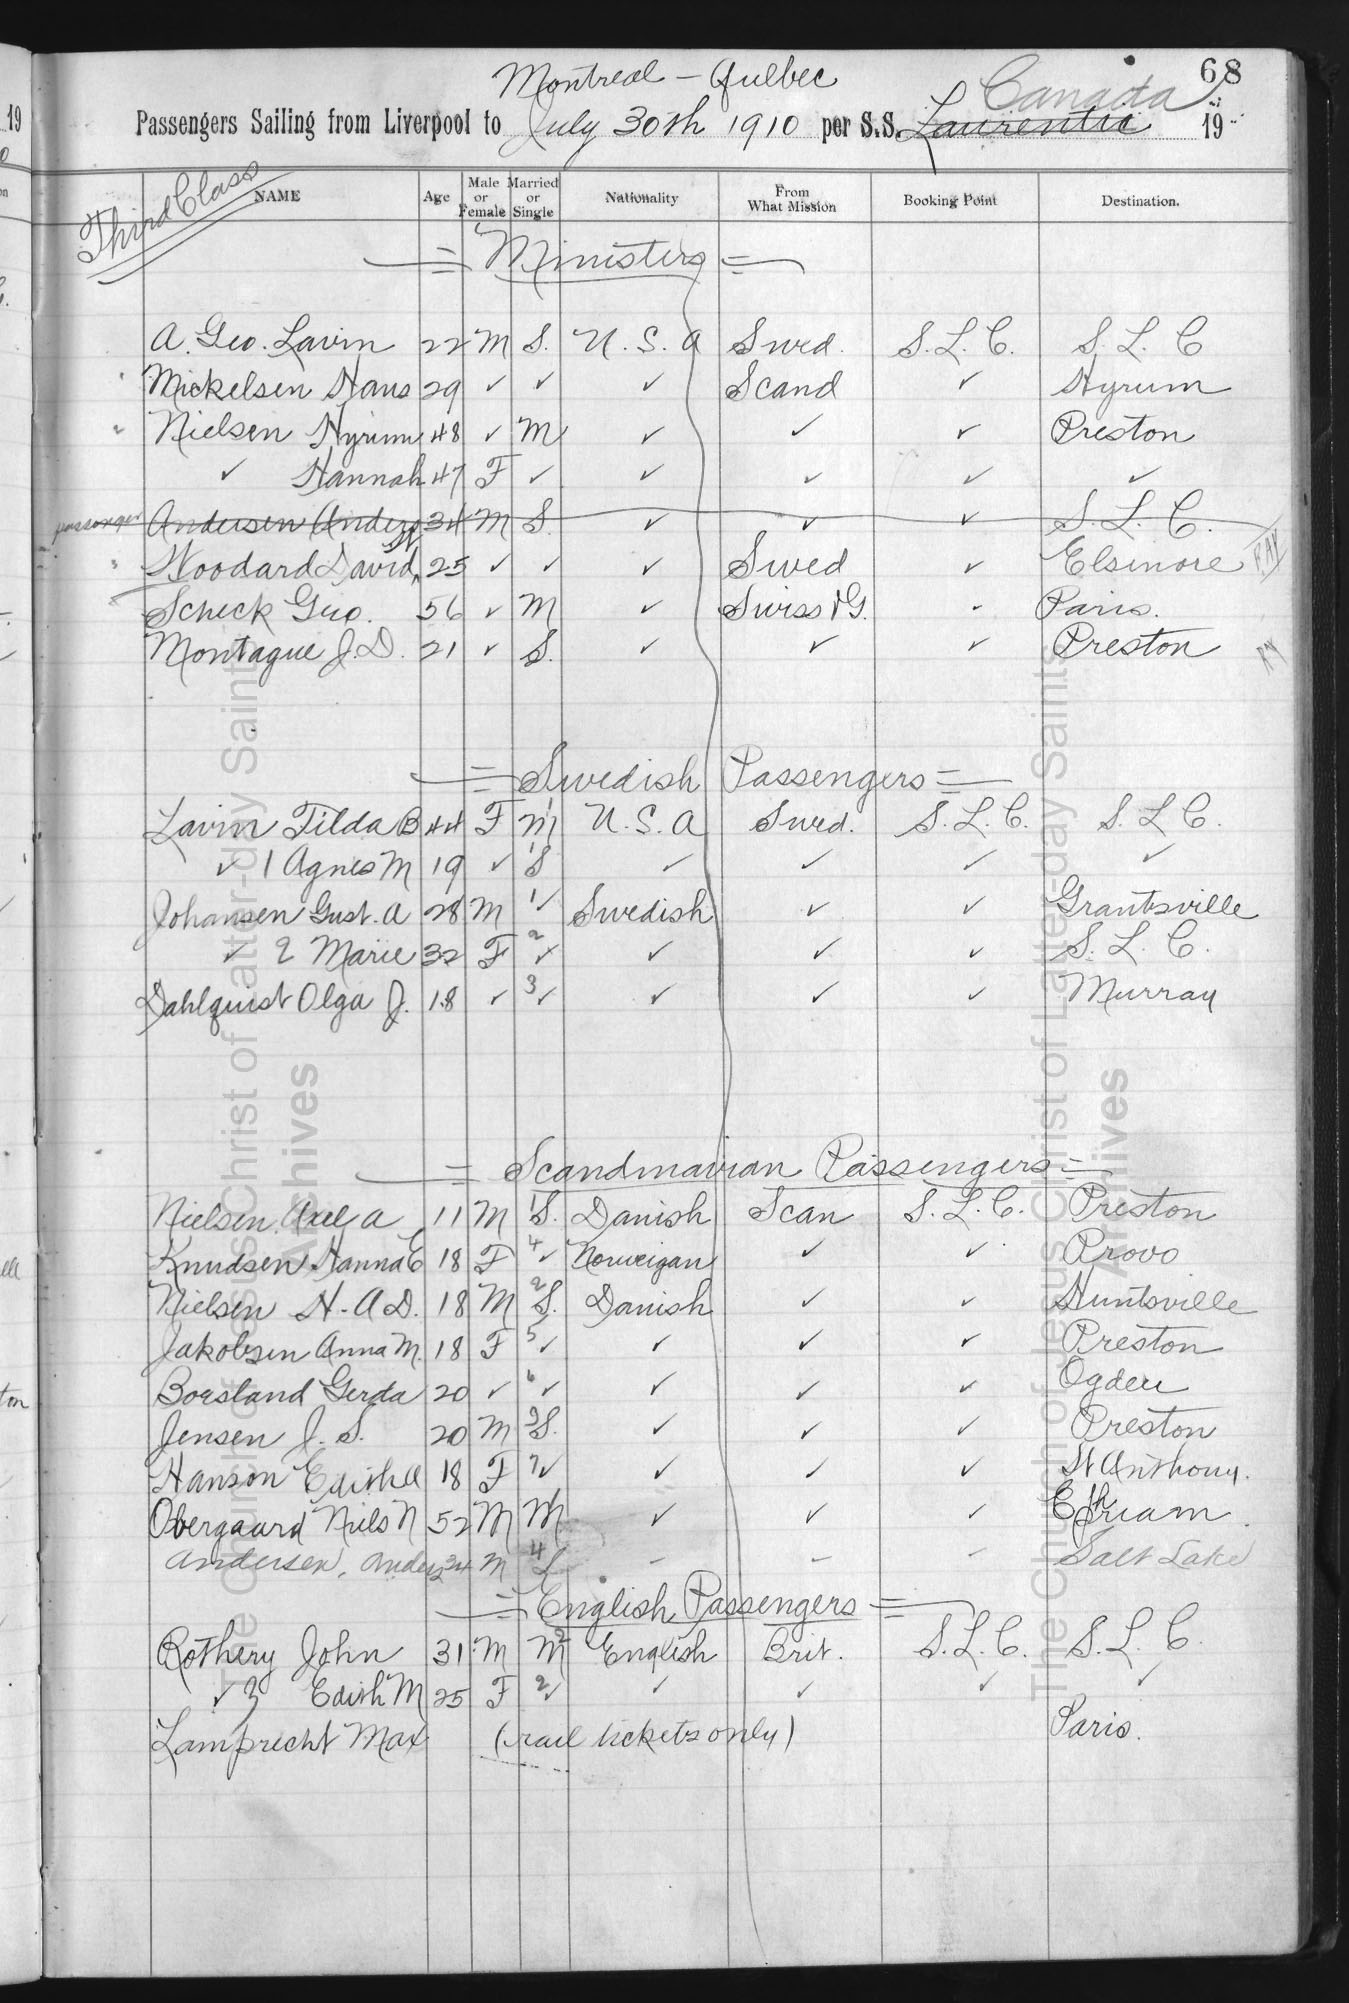 68
Montreal - Quebec
Canada
Passengers Sailing from Liverpool to July 30th 1910 per S.S. Laurentic 19
Third Class
NAME Age Male or Female Married or Single Nationality From What Mission Booking Point Destination.
= Ministers =
A. Geo. Lavin 22 M S. U. S. A Swed. S. L. C. S. L. C
Mickelsen Hans 29 ✓ ✓ ✓ Scand ✓ Hyrum
Nielsen Hyrum 48 ✓ M ✓ ✓ ✓ Preston
✓ Hannah 47 F ✓ ✓ ✓ ✓ ✓
passenger Andersen Anders 34 M S. ✓ ✓ ✓ S. L. C.
Woodard David 25 ✓ ✓ ✓ Swed ✓ Elsinore
Scheck Geo. 56 ✓ M ✓ Swiss & G. ✓ Paris.
Montague J. D. 21 ✓ S. ✓ ✓ ✓ Preston
= Swedish Passengers =
Lavin Tilda B 44 F M 1 U. S. A Swed. S. L. C. S. L C.
✓ 1 Agnes M 19 ✓ 1 S ✓ ✓ ✓ ✓
Johansen Gust. A 28 M 1 ✓ Swedish ✓ ✓ Grantsville
✓ 2 Marie 32 F 2 ✓ ✓ ✓ ✓ S. L. C.
Dahlquist Olga J. 18 ✓ 3 ✓ ✓ ✓ ✓ Murray
= Scandinavian Passengers =
Nielsen Axel A 11 M 1 S. Danish Scan S. L. C. Preston
Knudsen Hanna E 18 F 4 ✓ Norweigan ✓ ✓ Provo
Nielsen H. A D. 18 M 2 S. Danish ✓ ✓ Huntsville
Jakobsen Anna M. 18 F 5 ✓ ✓ ✓ ✓ Preston
Boesland Gerda 20 ✓ 6 ✓ ✓ ✓ ✓ Ogden
Jensen J. S. 20 M 3 S. ✓ ✓ ✓ Preston
Hanson Edith 18 F 7 ✓ ✓ ✓ ✓ St Anthony.
Overgaard Niels N 52 M M ✓ ✓ ✓ Ephriam.
Andersen, Anders 34 M 4 S - - - Salt Lake
= English Passengers =
Rothery John 31 M M 2 English Brit. S. L. C. S. L. C
✓ 3 Edith M 25 F 2 ✓ ✓ ✓ ✓ ✓
Lamprecht Max (rail tickets only) Paris.
The Church of Jesus Christ of Latter-day Saints
Archives
The Church of Jesus Christ of Latter-day Saints
Archives